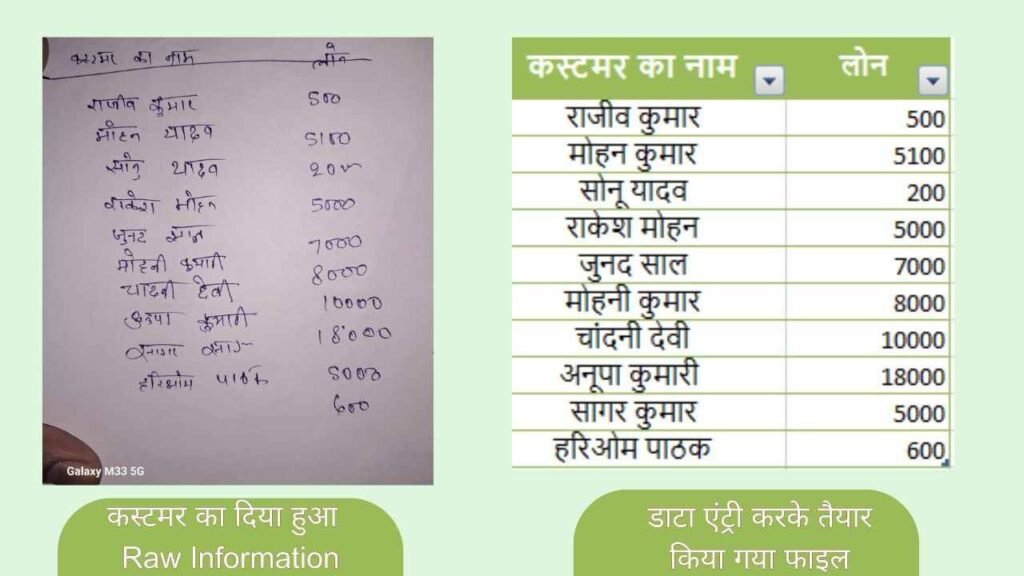 कस्टमर का नाम लोन
राजीव कुमार 500
मोहन यादव 5100
सोनु यादव
राकेश मोहन 5000
जुनद 7000
मोहनी कुमारी 8000
चादनी देवी 10000
कुमारी 18000
सागर 5000
हरिओम पाठक 600
Galaxy M33 5G
कस्टमर का दिया हुआ
Raw Information
कस्टमर का नाम लोन
राजीव कुमार 500
मोहन कुमार 5100
सोनू यादव 200
राकेश मोहन 5000
जुनद साल 7000
मोहनी कुमार 8000
चांदनी देवी 10000
अनूपा कुमारी 18000
सागर कुमार 5000
हरिओम पाठक 600
डाटा एंट्री करके तैयार
किया गया फाइल